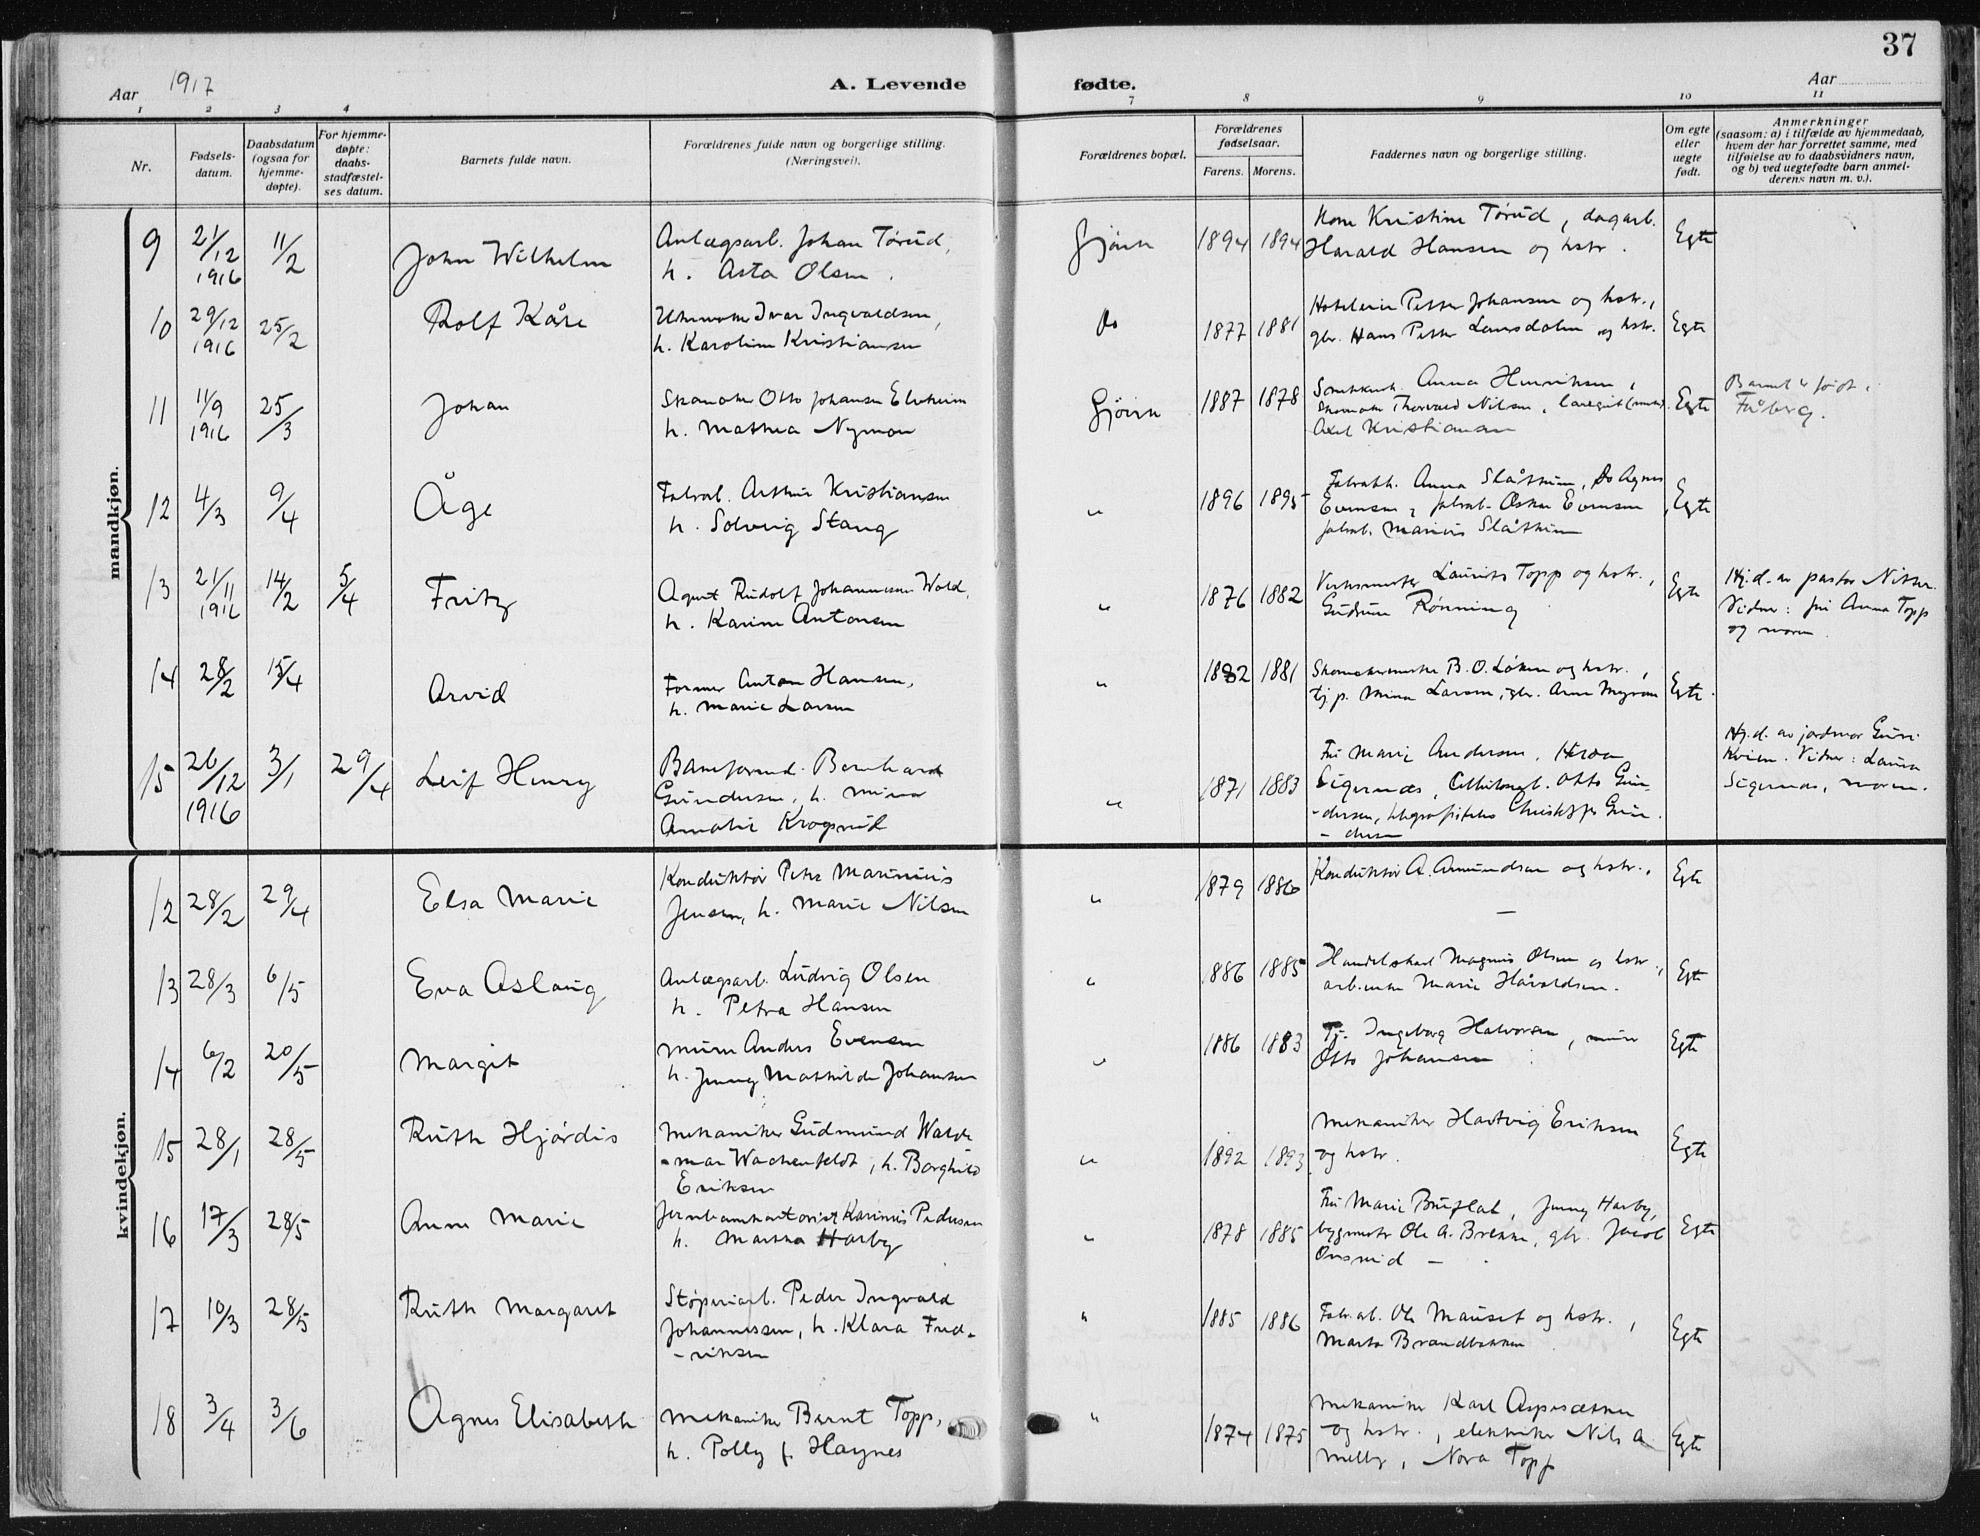 37
Aar 1917
A. Levende fødte.
Aar
1 2 3 4 7 8 9 10 11
Nr.
Fødsels-
datum.
Daabsdatum
(ogsaa for
hjemme-
døpte).
For hjemme-
døpte:
daabs-
stadfæstel-
ses datum.
Barnets fulde navn.
Forældrenes fulde navn og borgerlige stilling.
(Næringsvei).
Forældrenes bopæl.
Forældrenes
fødselsaar.
Farens. Morens.
Faddernes navn og borgerlige stilling.
Om egte
eller
uegte
født.
Anmerkninger
(saasom: a) i tilfælde av hjemmedaab,
hvem der har forrettet samme, med
tilføielse av to daabsvidners navn,
og b) ved uegtefødte barn anmel-
derens navn m. v.).
mandkjøn.
9 21/12 1916 11/2 John Wilhelm
Anlægsarb. Johan Tørud,
h. Asta Olsen.
Gjøvik 1894 1894
Kone Kristine Tørud, dagarb.
Harald Hansen og hstr.
Egte
10 29/12 1916 25/2 Rolf Kåre
Ivar Ingvaldsen,
h. Karoline Kristiansen
do 1877 1881
Hoteleier Petter Johansen og hstr.,
gbr. Hans Petter og hstr.
Egte
11 11/9 1916 25/3 Johan
Skomaker Otto Johansen Elvheim
h. Mathea Nyman
Gjøvik 1887 1878
Anna Henriksen,
Skomaker Thorvald Nilsen,
Axel Kristiansen
Egte
Barnet er født i
Fåberg.
12 4/3 9/4 Åge
Fabrab. Arthur Kristiansen
h. Solveig Stang
" 1896 1895
Fabrarb. Anna Slåtsveen, do Agnes
Evensen, fabrab. Oskar Evensen
fabrab. Marius Slåtsveen
Egte
13 21/11 1916 14/2 5/4 Fritz
Agent Rudolf Johannesen Wold,
h. Karine Antonsen
" 1876 1882
Verksmester Laurits Topp og hstr.,
Gudrun Rønning
Egte
Hj.d. av pastor
Vidner: fru Anna Topp
og moren.
14 28/2 15/4 Arvid
Former Anton Hansen,
h. Marie Larsen
" 1882 1881
Skomakermester B. O. Løken og hstr.,
tj.p. Mina Larsen, gbr. Arne Myrom
Egte.
15 26/12 1916 3/1 29/4 Leif Henry
Baneformd. Bernhard
Gundersen, h. Mina
Amalie Krogsrud
" 1871 1883
Fru Marie Andersen,
Sigernæs, Cellulosearb. Otto Gun-
-dersen, telegrafist Christoffer Gun-
-dersen
Hj.d. av jordmor Guri
Kvien. Vidner: Laura
Sigernæs, moren.
kvindekjøn.
12 28/2 29/4 Elsa Marie
Konduktør Peter Marinius
Jensen, h. Marie Nilsen
" 1879 1886
Konduktør A. Amundsen og hstr.,
—
Egte
13 28/3 6/5 Eva Aslaug
Anlægsarb. Ludvig Olsen
h. Petra Hansen
" 1886 1885
Handelskarl Magnus Olsen og hstr.,
arb.enke Marie Haraldsen.
Egte
14 6/2 20/5 Margit
Murer Anders Evensen
h. Jenny Mathilde Johansen
" 1886 1883
Tj. Ingeborg Halvorsen, murer
Otto Johansen
Egte
15 28/1 28/5 Ruth Hjørdis
Mekaniker Gudmund Walde
-mar Wachenfeldt, h. Borghild
Eriksen
" 1892 1893
Mekaniker Hartvig Eriksen
og hstr.
Egte
16 17/3 28/5 Anne Marie
Jernbanekontorist Karinius Pedersen
h. Martha Harby
" 1878 1885
Fru Marie Buflat, Jenny Harby,
bygmester Ole A. Brekke, gbr. Jacob
Onsrud —
Egte
17 10/3 28/5 Ruth Margaret
Støperiarb. Peder Ingvald
Johannessen, h. Klara Fred-
-riksen
" 1885 1886
Fabr.ab. Ole Mauset og hstr.,
Marta Brandbakken
Egte
18 3/4 3/6 Agnes Elisabeth
Mekaniker Bernt Topp,
h. Polly f. Haynes
" 1874 1875
Mekaniker Karl Aspesætren
og hstr., elektriker Nils A.
Melby, Nora Topp
Egte